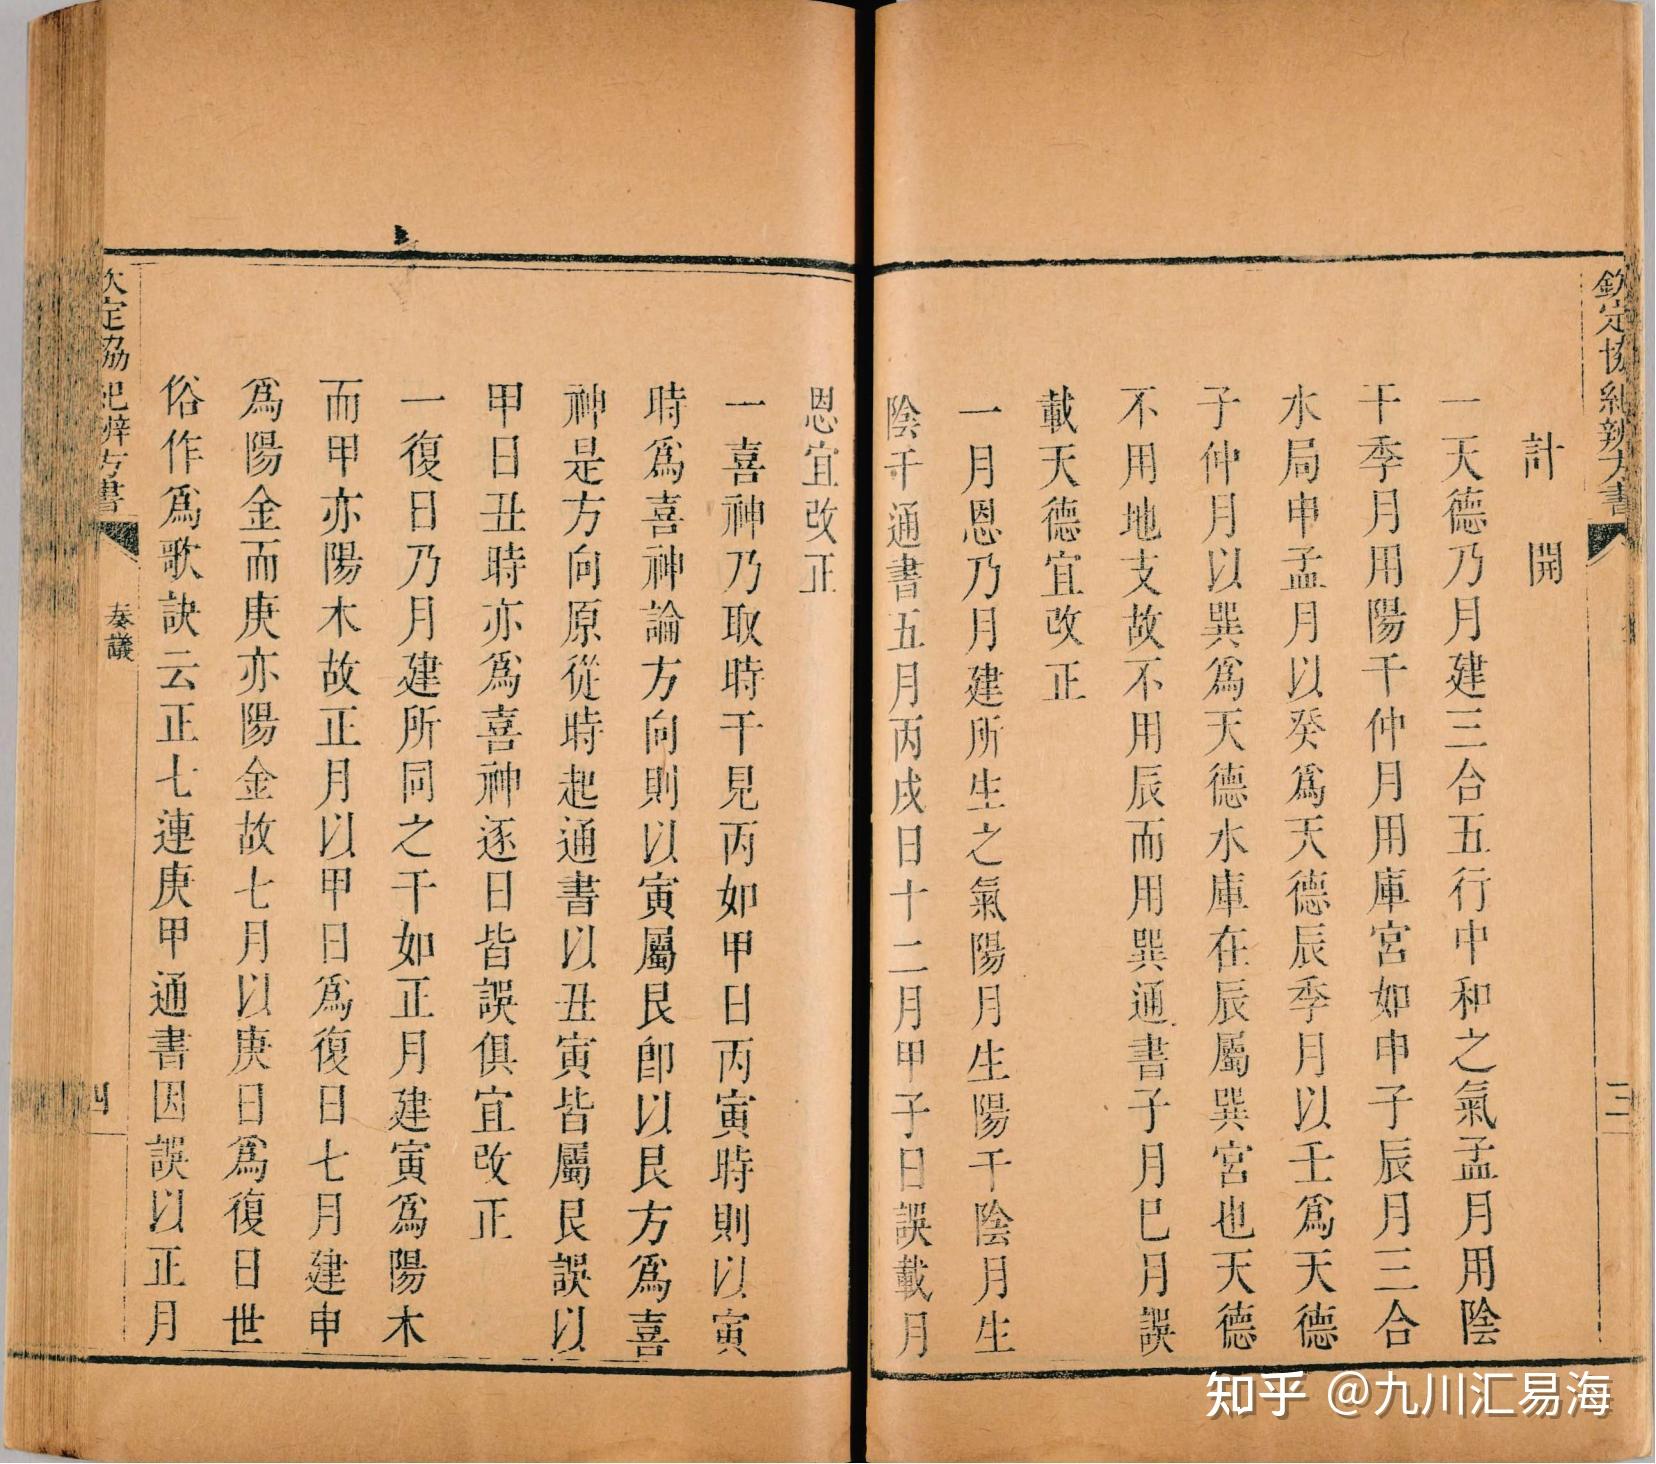 欽定協紀辨方書
三
計開
一天德乃月建三合五行中和之氣孟月用陰
干季月用陽干仲月用庫宮如申子辰月三合
水局申孟月以癸為天德辰季月以壬為天德
子仲月以巽為天德水庫在辰屬巽宮也天德
不用地支故不用辰而用巽通書子月巳月誤
載天德宜改正
一月恩乃月建所生之氣陽月生陽干陰月生
陰干通書五月丙戌日十二月甲子日誤載月
恩宜改正
一喜神乃取時干見丙如甲日丙寅時則以寅
時為喜神論方向則以寅屬艮即以艮方為喜
神是方向原從時起通書以丑寅皆屬艮誤以
甲日丑時亦為喜神逐日皆誤俱宜改正
一復日乃月建所同之干如正月建寅為陽木
而甲亦陽木故正月以甲日為復日七月建申
為陽金而庚亦陽金故七月以庚日為復日世
俗作為歌訣云正七連庚甲通書因誤以正月
欽定協紀辨方書
奏議
四
知乎 @九川汇易海